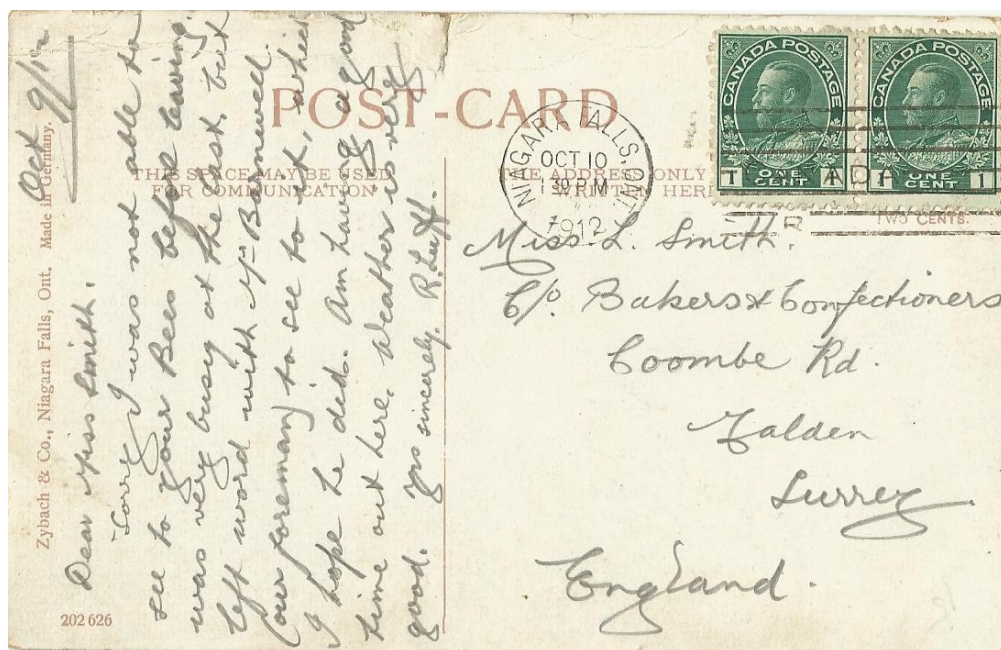 POST-CARD
THIS SPACE MAY BE USED
FOR COMMUNICATION
THE ADDRESS ONLY
HERE
Zybach & Co., Niagara Falls, Ont. Made in Germany.
202 626
Oct 9/12
Dear Miss Smith.
Sorry I was not able to
see to your Bees before leaving
was very busy at the last. but
left word with Mr Bannwell
(our foreman) to see to it, which
I hope he did. Am having a good
time out here. Weather is very
good. Yrs sincerely R. Luff.
NIAGARA FALLS, ONT.
OCT 10
PM
1912
CANADA POSTAGE
1 ONE CENT 1
CANADA POSTAGE
1 ONE CENT 1
TWO CENTS.
Miss L. Smith.
C/o Bakers & Confectioners
Coombe Rd.
Malden
Surrey
England.